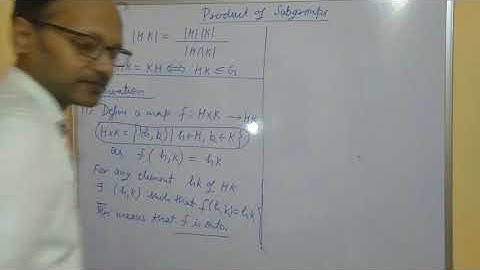 Product of Subgroups
|HK| = |H||K|
|H∩K|
HK = KH ⇔ HK ≤ G
Define a map f: H×K → HK
H×K = {(h,k) | h∈H, k∈K}
as f(h,k) = hk
For any element hk of HK
∃ (h,k) such that f(h,k) = hk
This means that f is onto.